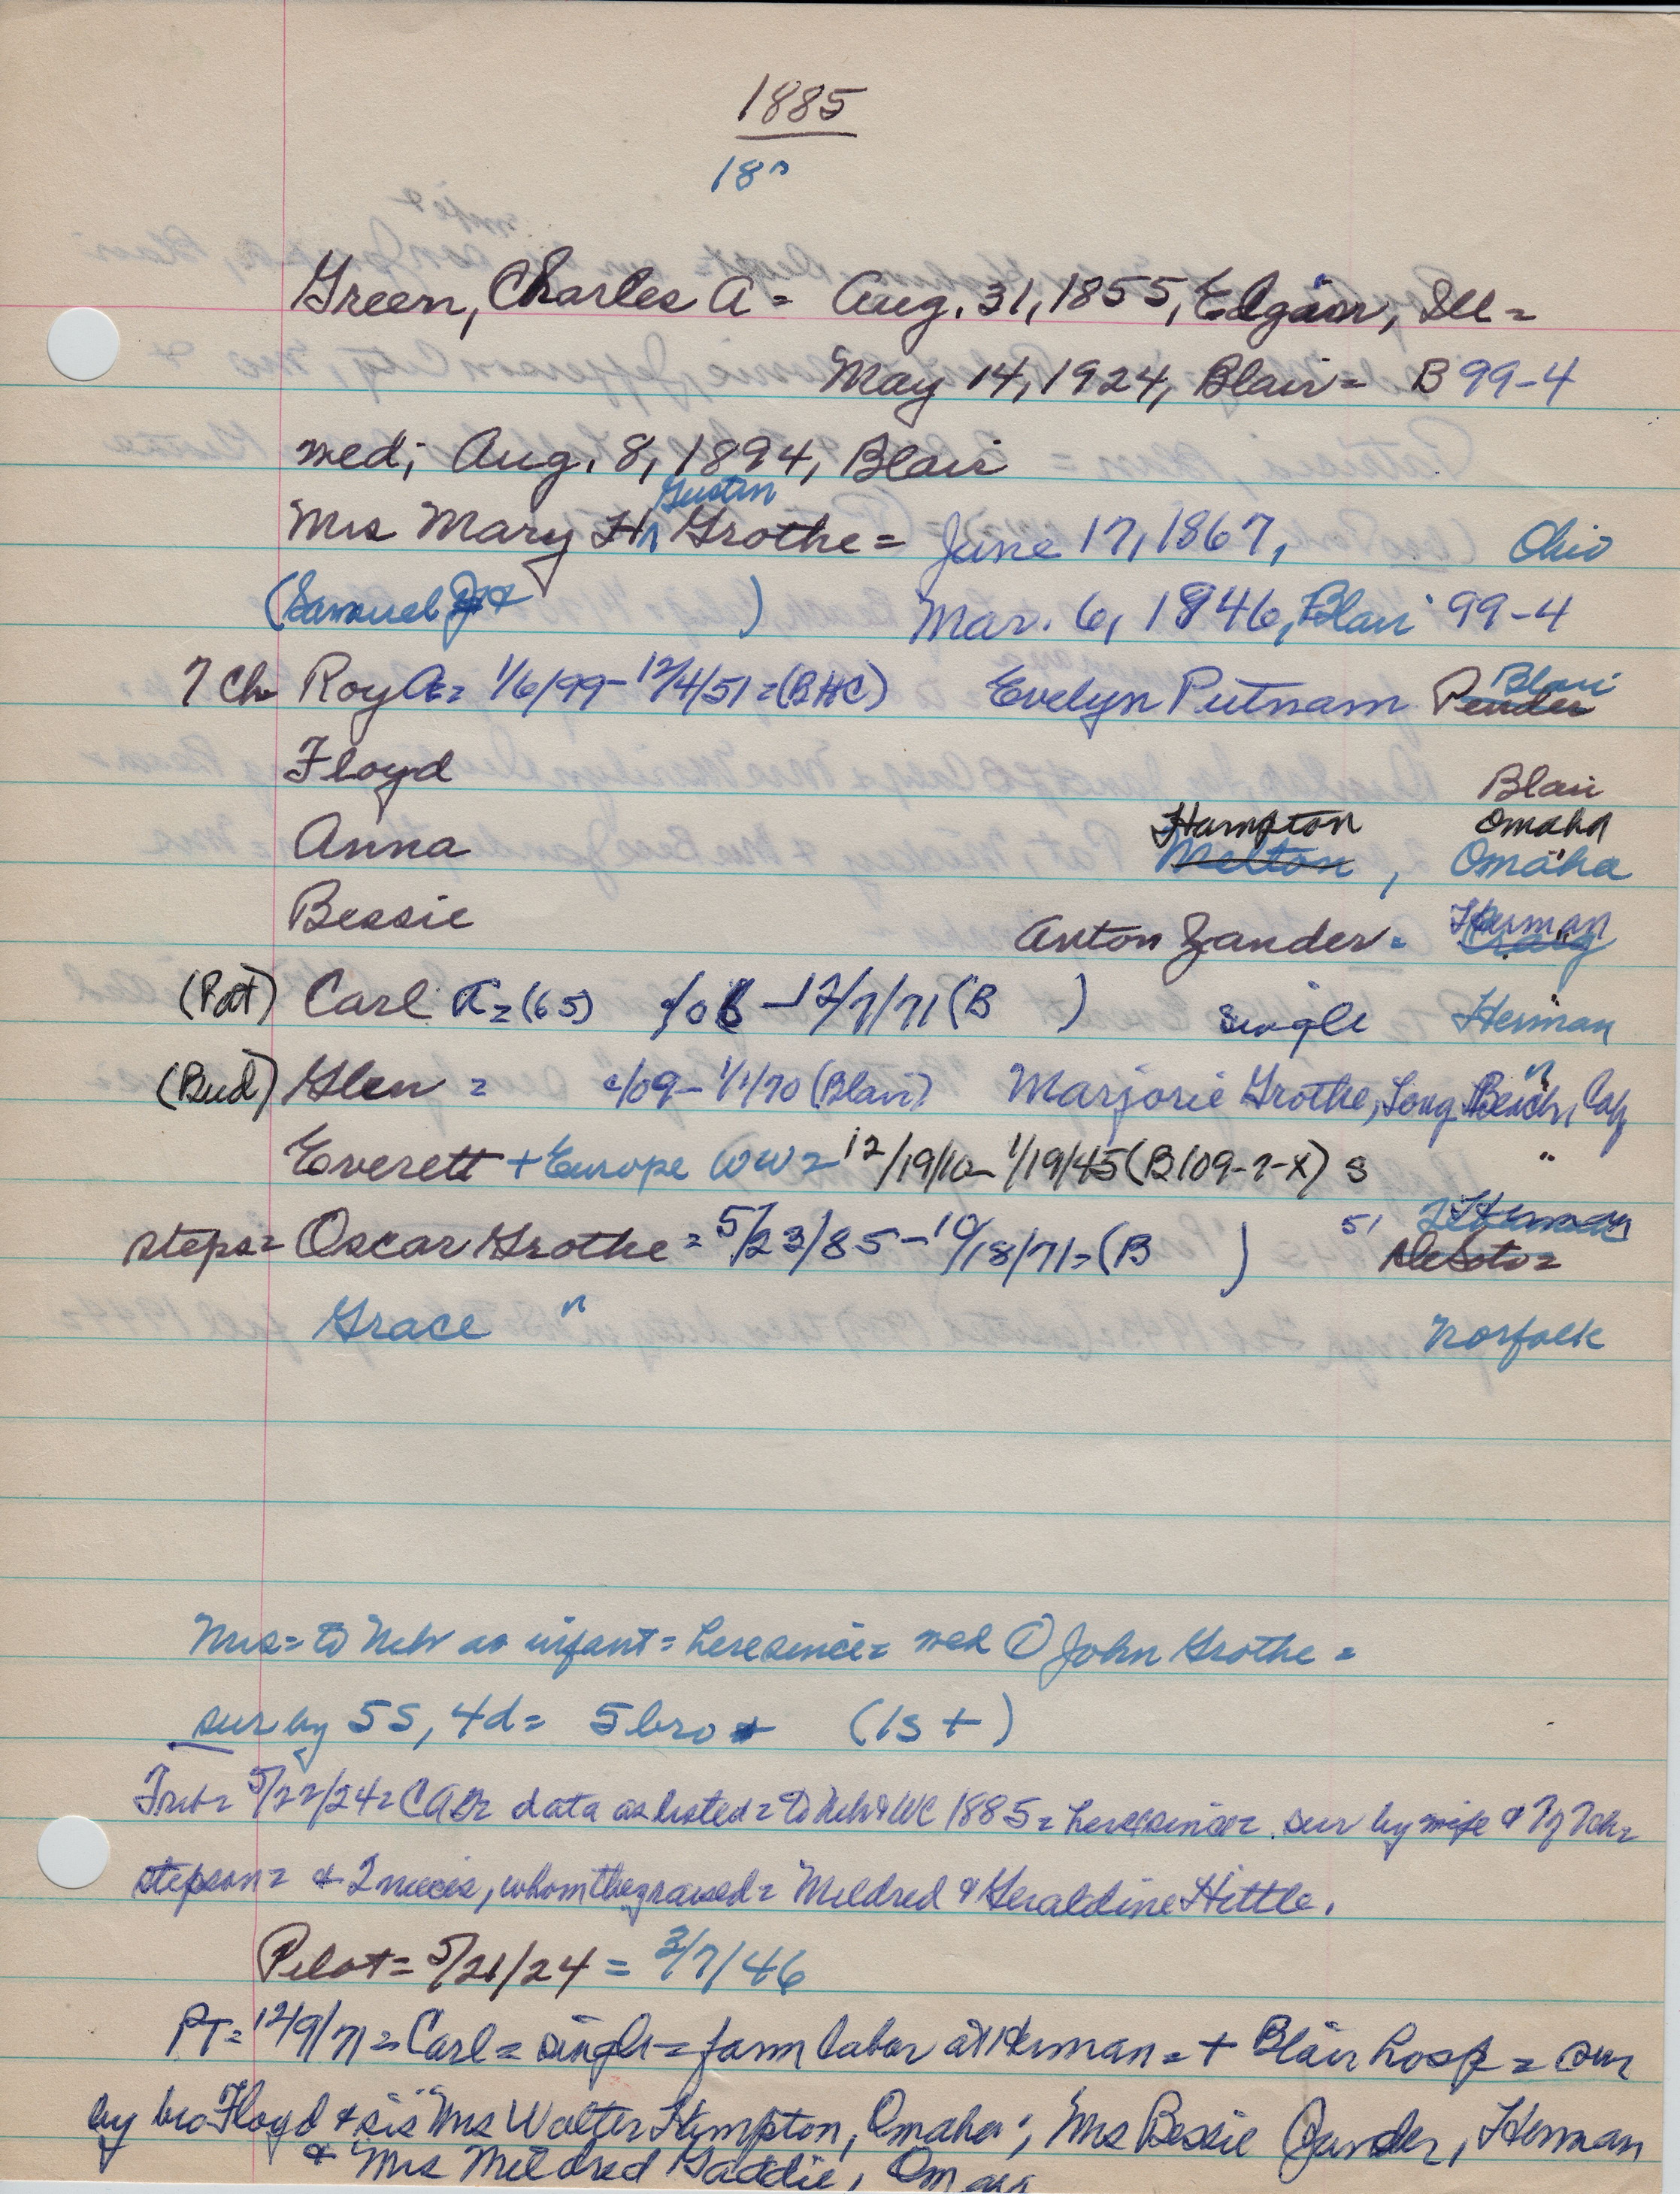 1885
18
Green, Charles A = Aug. 31, 1855, Edgar, Ill =
May 14, 1924, Blair = B 99-4
med; Aug. 8, 1894, Blair
Gustin
Mrs Mary H Grothe = June 17, 1867, Ohio
(Samuel & ) Mar. 6, 1946, Blair 99-4
7 Ch Roy A = 1/6/99 - 12/4/51 = (BHC) Evelyn Putnam Pender Blair
Floyd Blair
Anna Hampton Omaha
Melton, Omaha
Bessie Anton Zander = Herman
(Pat) Carl = (65) /06 - 12/7/71 (B ) single Herman
(Bud) Glen = /09 - 1/1/70 (Blair) Marjorie Grothe, Long Beach, Calif "
Everett + Europe WW 2 12/19/10 - 1/19/45 (B109-2-X) s "
steps = Oscar Grothe = 5/23/85 - 10/18/71 = (B ) 51 Herman
DeSoto =
Grace " Norfolk
Mrs = to Neb as infant = here since = med ① John Grothe =
sur by 5s, 4d = 5 bro + (1s +)
Trib = 5/22/24 = CAG = data as listed = to Neb & WC 1885 = here since = sur by wife & 7 ch =
stepson = & 2 nieces, whom they raised = Mildred & Geraldine Hittle.
Pilot = 5/21/24 = 3/7/46
PT = 12/9/71 = Carl = single = farm labor at Herman = + Blair hosp = sur
by bro Floyd & sis Mrs Walter Hampton, Omaha; Mrs Bessie Zander, Herman
& Mrs Mildred Gaddie, Omaha